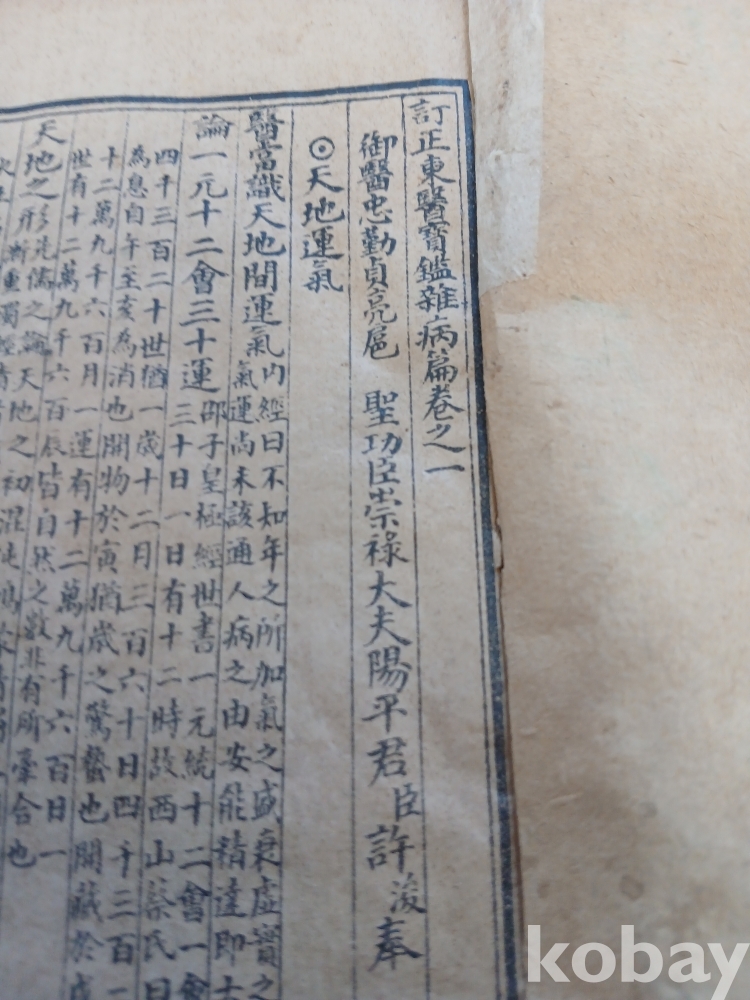 訂正東醫寶鑑雜病篇卷之一
御醫忠勤貞亮扈 聖功臣崇祿大夫陽平君臣許浚奉
⊙天地運氣
醫當識天地間運氣內經曰不知年之所加氣之盛衰虛實之
氣運尚未該通人病之由安能精達即
論一元十二會三十運邵子皇極經世書一元統十二會一會
三十日一日有十二時故西山蔡氏曰
四千三百二十世猶一歲十二月三百六十日四千三百二
為息自午至亥為消也開物於寅猶歲之驚蟄也閉藏於戌
十二萬九千六百月一運有十二萬九千六百日一
世有十二萬九千六百辰皆自然之數非有所牽合也
天地之形先儒之論天地之初混沌
漸重濁
kobay